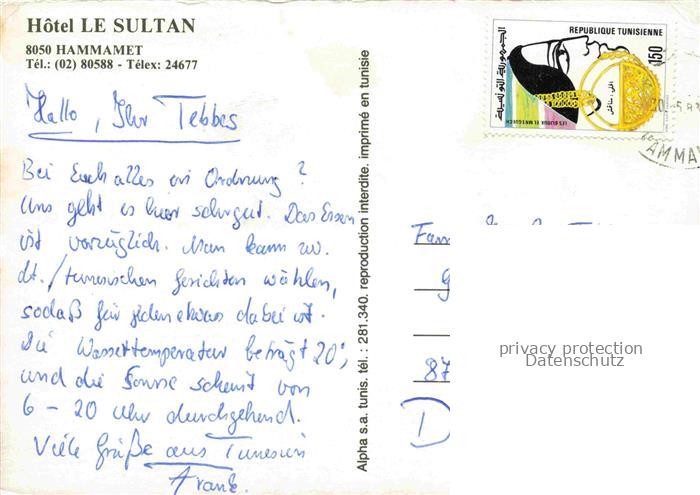 Hôtel LE SULTAN
8050 HAMMAMET
Tél.: (02) 80588 - Télex: 24677
Hallo, Ihr Tebbes
Bei Euch alles in Ordnung?
Uns geht es hier sehr gut. Das Essen
ist vorzüglich. Man kann zw.
dt./tunesischen Gerichten wählen,
sodaß für jeden etwas dabei ist.
Die Wassertemperatur beträgt 20°,
und die Sonne scheint von
6 - 20 Uhr durchgehend.
Viele Grüße aus Tunesien
Frank.
Alpha s.a. tunis. tél. : 281.340. reproduction interdite. imprimé en tunisie
REPUBLIQUE TUNISIENNE
150
الجمهورية التونسية
LES BIJOUX EL MNEGUECH
AMMA
Fam
87
D
privacy protection
Datenschutz